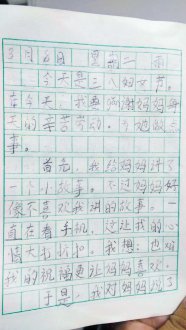 3月8日 星期二 雨
今天是三八妇女节。
在今天,我要感谢妈妈每
天的辛苦劳动,为她做点
事。
首先,我给妈妈讲了
一个小故事。不过妈妈好
像不喜欢我讲的故事,一
直在看手机,这让我的心
情大打折扣。我想,也许
我的祝福更让妈妈喜欢。
于是,我对妈妈说了